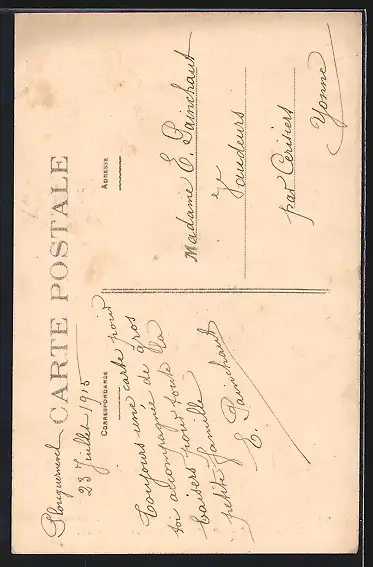 CARTE POSTALE
Plouguerneau
23 Juillet 1915
CORRESPONDANCE
toujours une carte pour
toi accompagnée de gros
baisers pour toute la
petite famille
E. Painchaut
ADRESSE
Madame E. Painchaut
à
Vaudeurs
par Cerisiers
Yonne